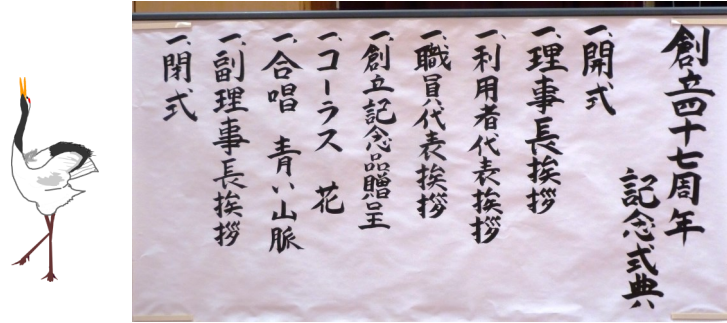 創立四十七周年
記念式典
一、開式
一、理事長挨拶
一、利用者代表挨拶
一、職員代表挨拶
一、創立記念品贈呈
一、コーラス 花
一、合唱 青い山脈
一、副理事長挨拶
一、閉式